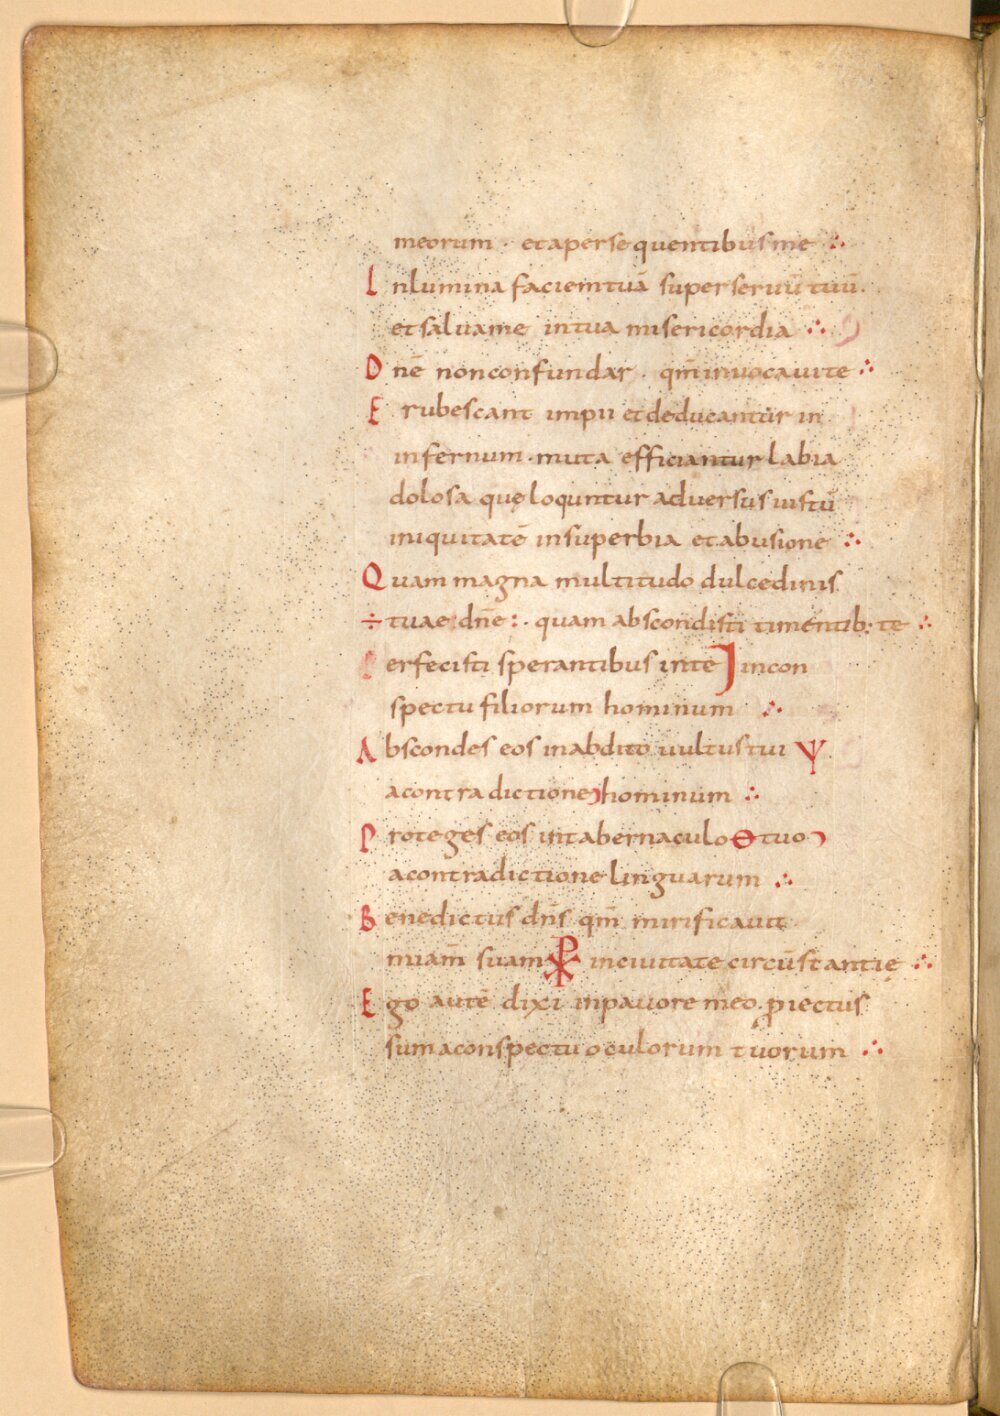 meorum · et a persequentibus me ∴
Inlumina faciem tuā super seruū tuū.
et salua me in tua misericordia ∴
Dnē non confundar · qm̄ inuocaui te ∴
Erubescant impii et deducantur in
infernum · muta efficiantur labia
dolosa quę loquntur aduersus iustū
iniquitatē in superbia et abusione ∴
Quam magna multitudo dulcedinis
÷ tuae dnē : · quam abscondisti timentib: te ∴
Perfecisti sperantibus in te in con
spectu filiorum hominum ∴
Abscondes eos in abdito uultus tui Ψ
a contradictione hominum ∴
Proteges eos in tabernaculo Θ tuo
a contradictione linguarum ∴
Benedictus dn̄s qm̄ mirificauit
miam̄ suam ⳩ in ciuitate circūstantię ∴
Ego autē dixi in pauore meo. ꝓiectus
sum a conspectu oculorum tuorum ∴